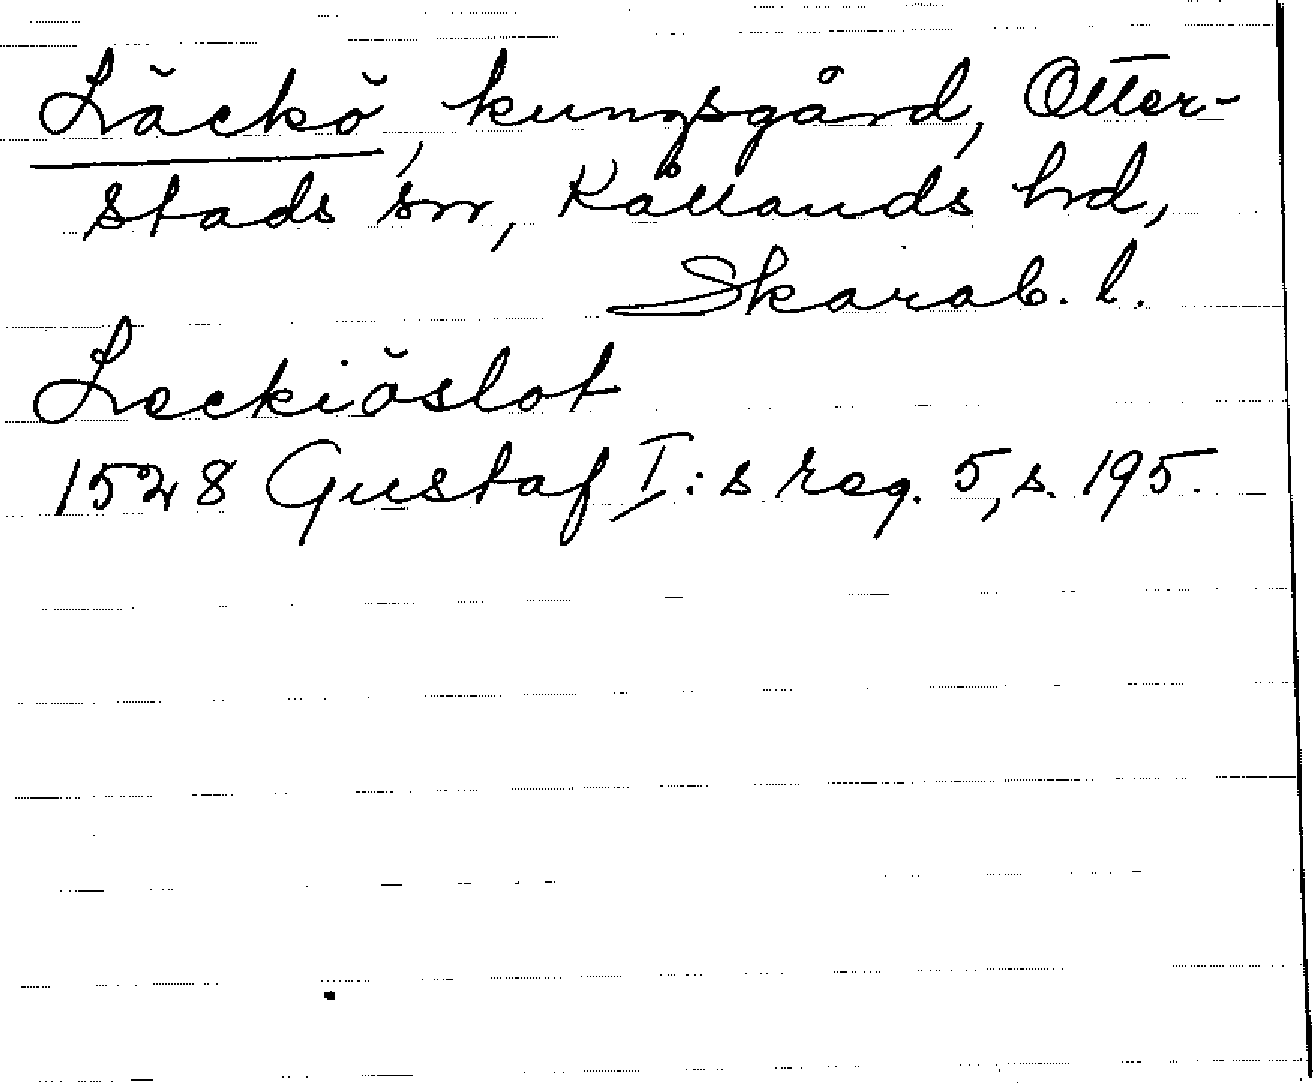 Läckö, kungsgård, Otter-
stads sn, Kållands hd,
Skarab. l.
Leckiöslot
1528 Gustaf I:s reg. 5, s. 195.